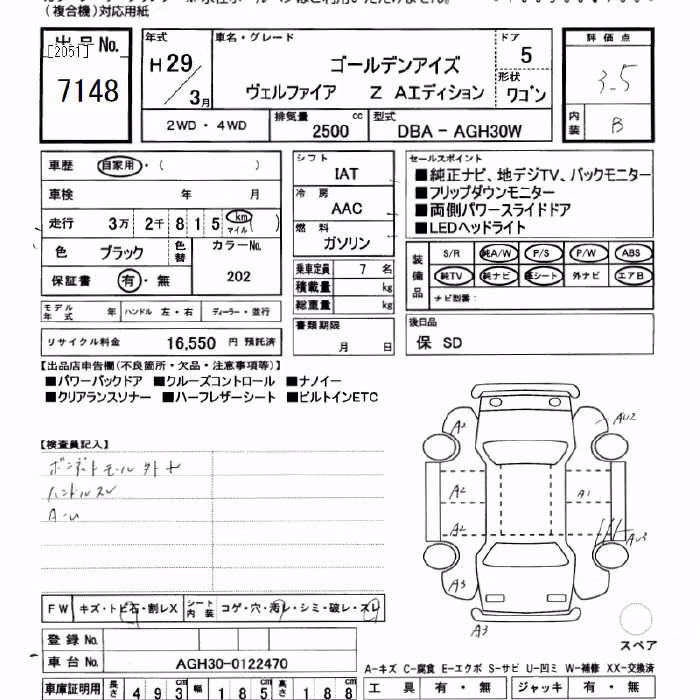 (複合機)対応用紙
出品No.
[2051]
7148
年式
H29/3月
車名・グレード
ゴールデンアイズ
ヴェルファイア Z Aエディション
ドア
5
形状
ワゴン
2WD・4WD
排気量
2500 cc
型式
DBA - AGH30W
評価点
3.5
内装
B
車歴 自家用・( )
車検 年 月
走行 3万 2千 8 1 5 km マイル ( )
色 ブラック
色替
カラーNo.
202
保証書 有・無
モデル年式 年
ハンドル 左・右
ディーラー・並行
リサイクル料金 16,550 円 預託済
シフト
IAT
冷房
AAC
燃料
ガソリン
乗車定員 7 名
積載量 kg
総重量 kg
書類期限
月 日
セールスポイント
■純正ナビ、地デジTV、バックモニター
■フリップダウンモニター
■両側パワースライドドア
■LEDヘッドライト
装備品
S/R 純A/W P/S P/W ABS
純TV 純ナビ 革シート 外ナビ エアB
ナビ型番:
後日品
保 SD
【出品店申告欄(不良箇所・欠品・注意事項等)】
■パワーバックドア ■クルーズコントロール ■ナノイー
■クリアランスソナー ■ハーフレザーシート ■ビルトインETC
【検査員記入】
ハンドルスレ
A-U
A2
AU2
A2
A1
A2
AU3
A3
A3
スペア
FW キズ・トビ石・割レX
シート内装 コゲ・穴・汚レ・シミ・破レ・スレ
登録No.
車台No. AGH30-0122470
A-キズ C-腐食 E-エクボ S-サビ U-凹ミ W-補修 XX-交換済
車庫証明用 長さ 4 9 3 幅 1 8 5 高さ 1 8 8
工具 有・無 ジャッキ 有・無